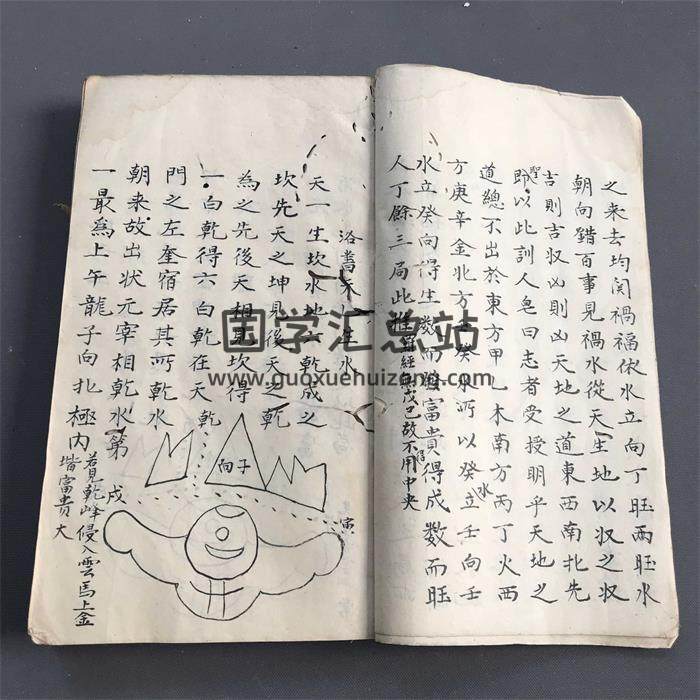 之來去均関禍福依水立向丁旺両旺水
朝向錯百事見禍水從天生地以収之収
吉則吉収凶則凶天地之道東西南北先
聖
即以此訓人皂曰志者受授明乎天地之
道總不出於東方甲乙木南方丙丁火西
方庚辛金北方壬癸水所以癸立壬向壬
水立癸向得生数而發富貴得成数而旺
人丁餘三局此推
戊己故不用中央
洛書
天一生坎水地六乾成之
坎先天之坤見後天之乾
為之先後天相見坎得
一白乾得六白乾在天乾
門之左奎宿居其所乾水
朝来故出状元宰相乾水第
一最為上午龍子向北極內
若見乾峰侵入雲馬上金
堦富貴大
子向
戌
寅
国学汇总站
www.guoxuehuizong.com